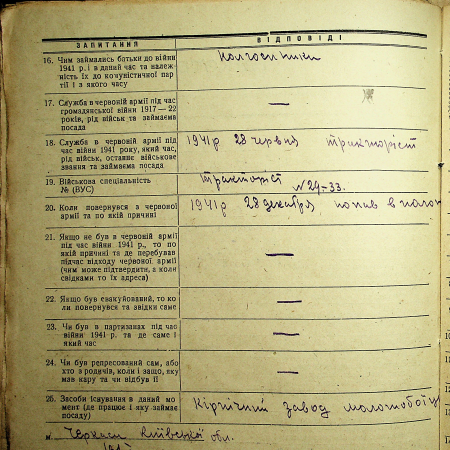 ЗАПИТАННЯ ВІДПОВІДІ
16. Чим займались батьки до війни Колгоспники
1941 р. і в даний час та належ-
ність їх до комуністичної пар-
тії і з якого часу
17. Служба в червоній армії під час —
громадянської війни 1917—22
років, рід військ та займаєма
посада
18. Служба в червоній армії під 1941 р 28 червня тракторіст
час війни 1941 року, який час,
рід військ, останнє військове
звання та займаєма посада
19. Військова спеціальність тракторіст
№ (ВУС) №24-33.
20. Коли повернувся з червоної 1941 р 28 декабря попав в полон
армії та по якій причині
21. Якщо не був в червоній армії
під час війни 1941 р., то по
якій причині та де перебував —
підчас відходу червоної армії
(чим може підтвердити, а коли
свідками то їх адреса)
22. Якщо був евакуйований, то ко- —
ли повернувся та звідки саме
23. Чи був в партизанах під час —
війни 1941 р. та де саме і
який час
24. Чи був репресований сам, або —
хто з родичів, коли і защо, яку
мав кару та чи відбув її
25. Засоби існування в даний мо- Кірпічний завод молотобоїц
мент (де працює і яку займає
посаду)
м. Черкаси Київської обл.